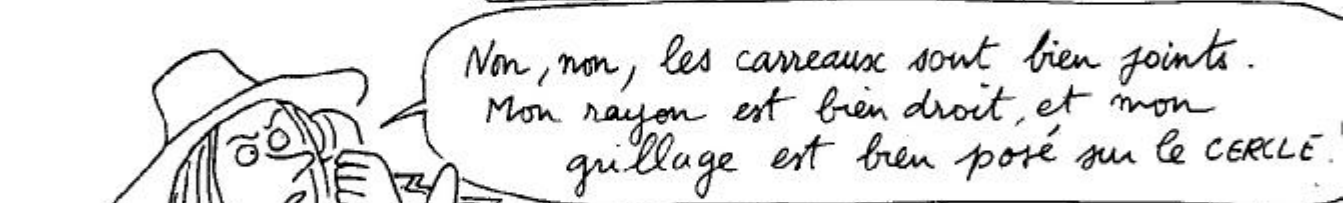 Non, non, les carreaux sont bien joints.
Mon rayon est bien droit, et mon
grillage est bien posé sur le CERCLE.